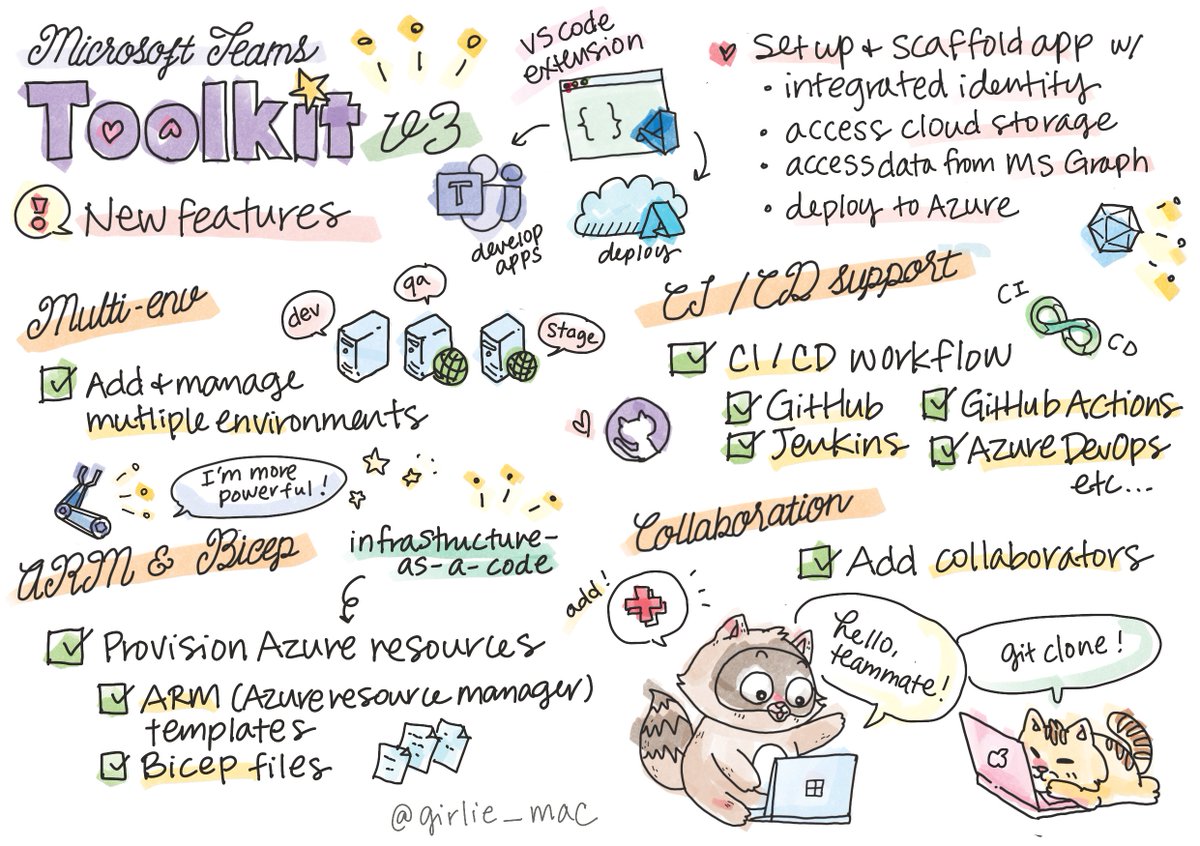 Microsoft Teams
Toolkit v3
! New features
VS code
extension
T
develop
apps
deploy
Set up + scaffold app w/
• integrated identity
• access cloud storage
• access data from MS Graph
• deploy to Azure
Multi-env
dev
qa
stage
Add + manage
mutliple environments
I'm more
powerful!
ARM & Bicep
infrastructure-
as-a-code
Provision Azure resources
ARM (Azure resource manager)
templates
Bicep files
CI/CD support
CI
CD
CI/CD workflow
GitHub
GitHub Actions
Jenkins
Azure DevOps
etc...
Collaboration
Add collaborators
add!
hello,
teammate!
git clone!
C3
@girlie_mac